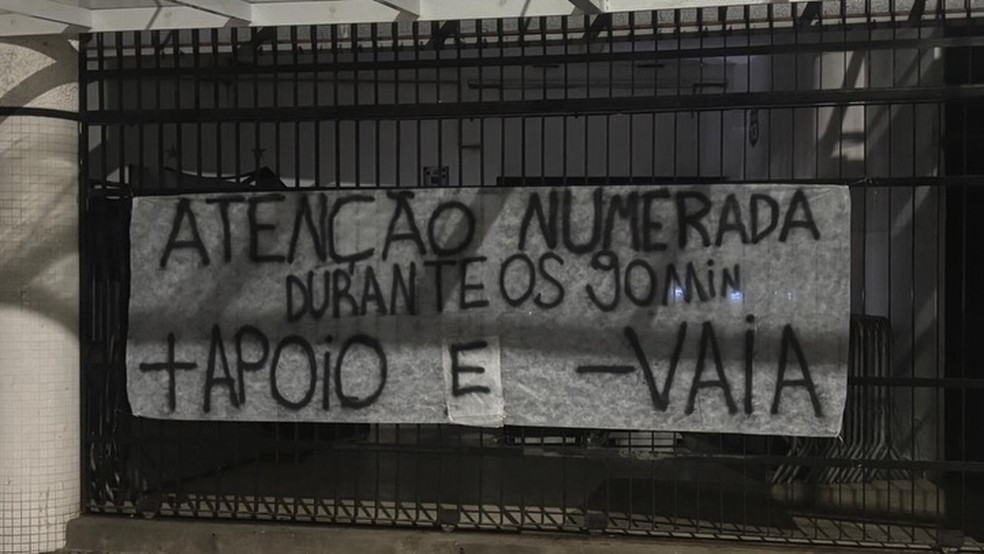 ATENÇÃO NUMERADA
DURANTE OS 90 MiN
+ APOiO E - VAiA